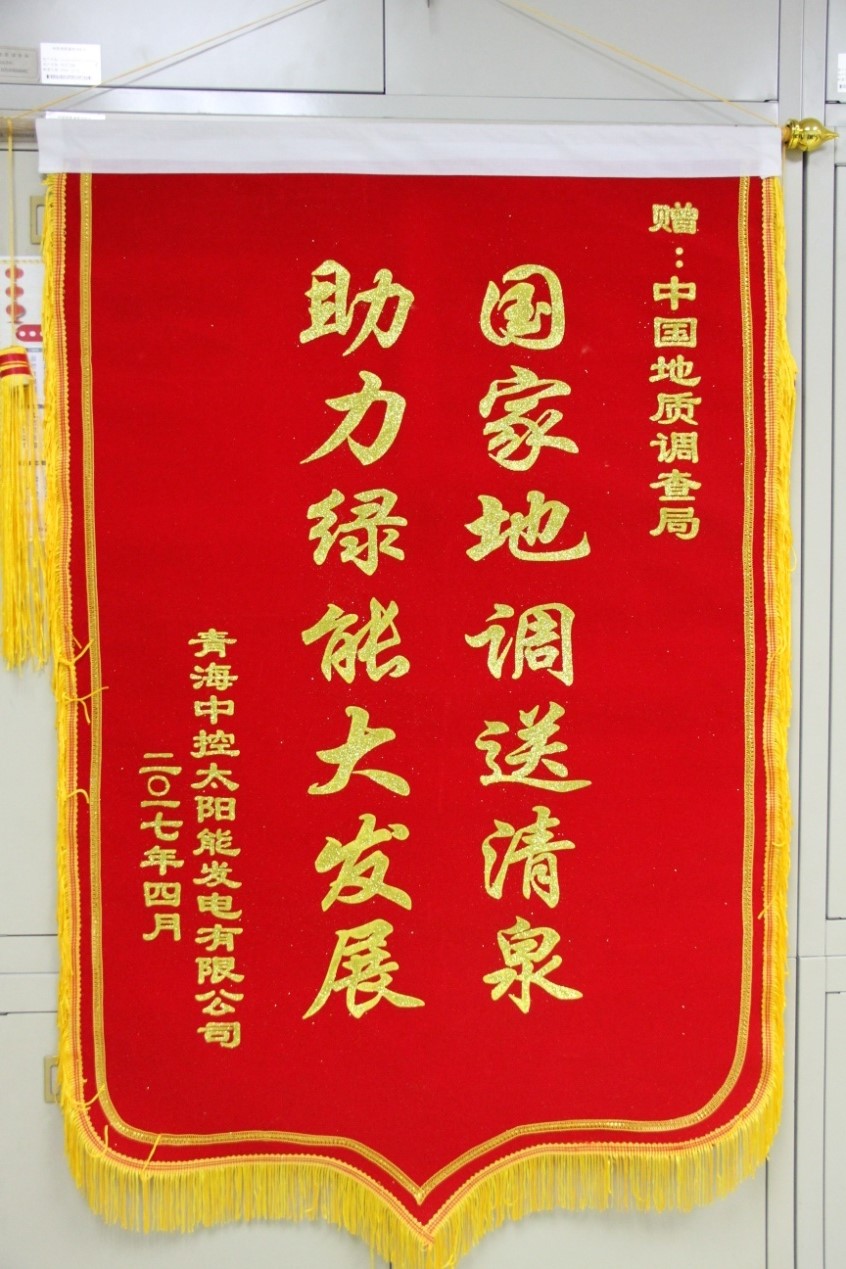 赠：中国地质调查局
国家地调送清泉
助力绿能大发展
青海中控太阳能发电有限公司
二〇一七年四月